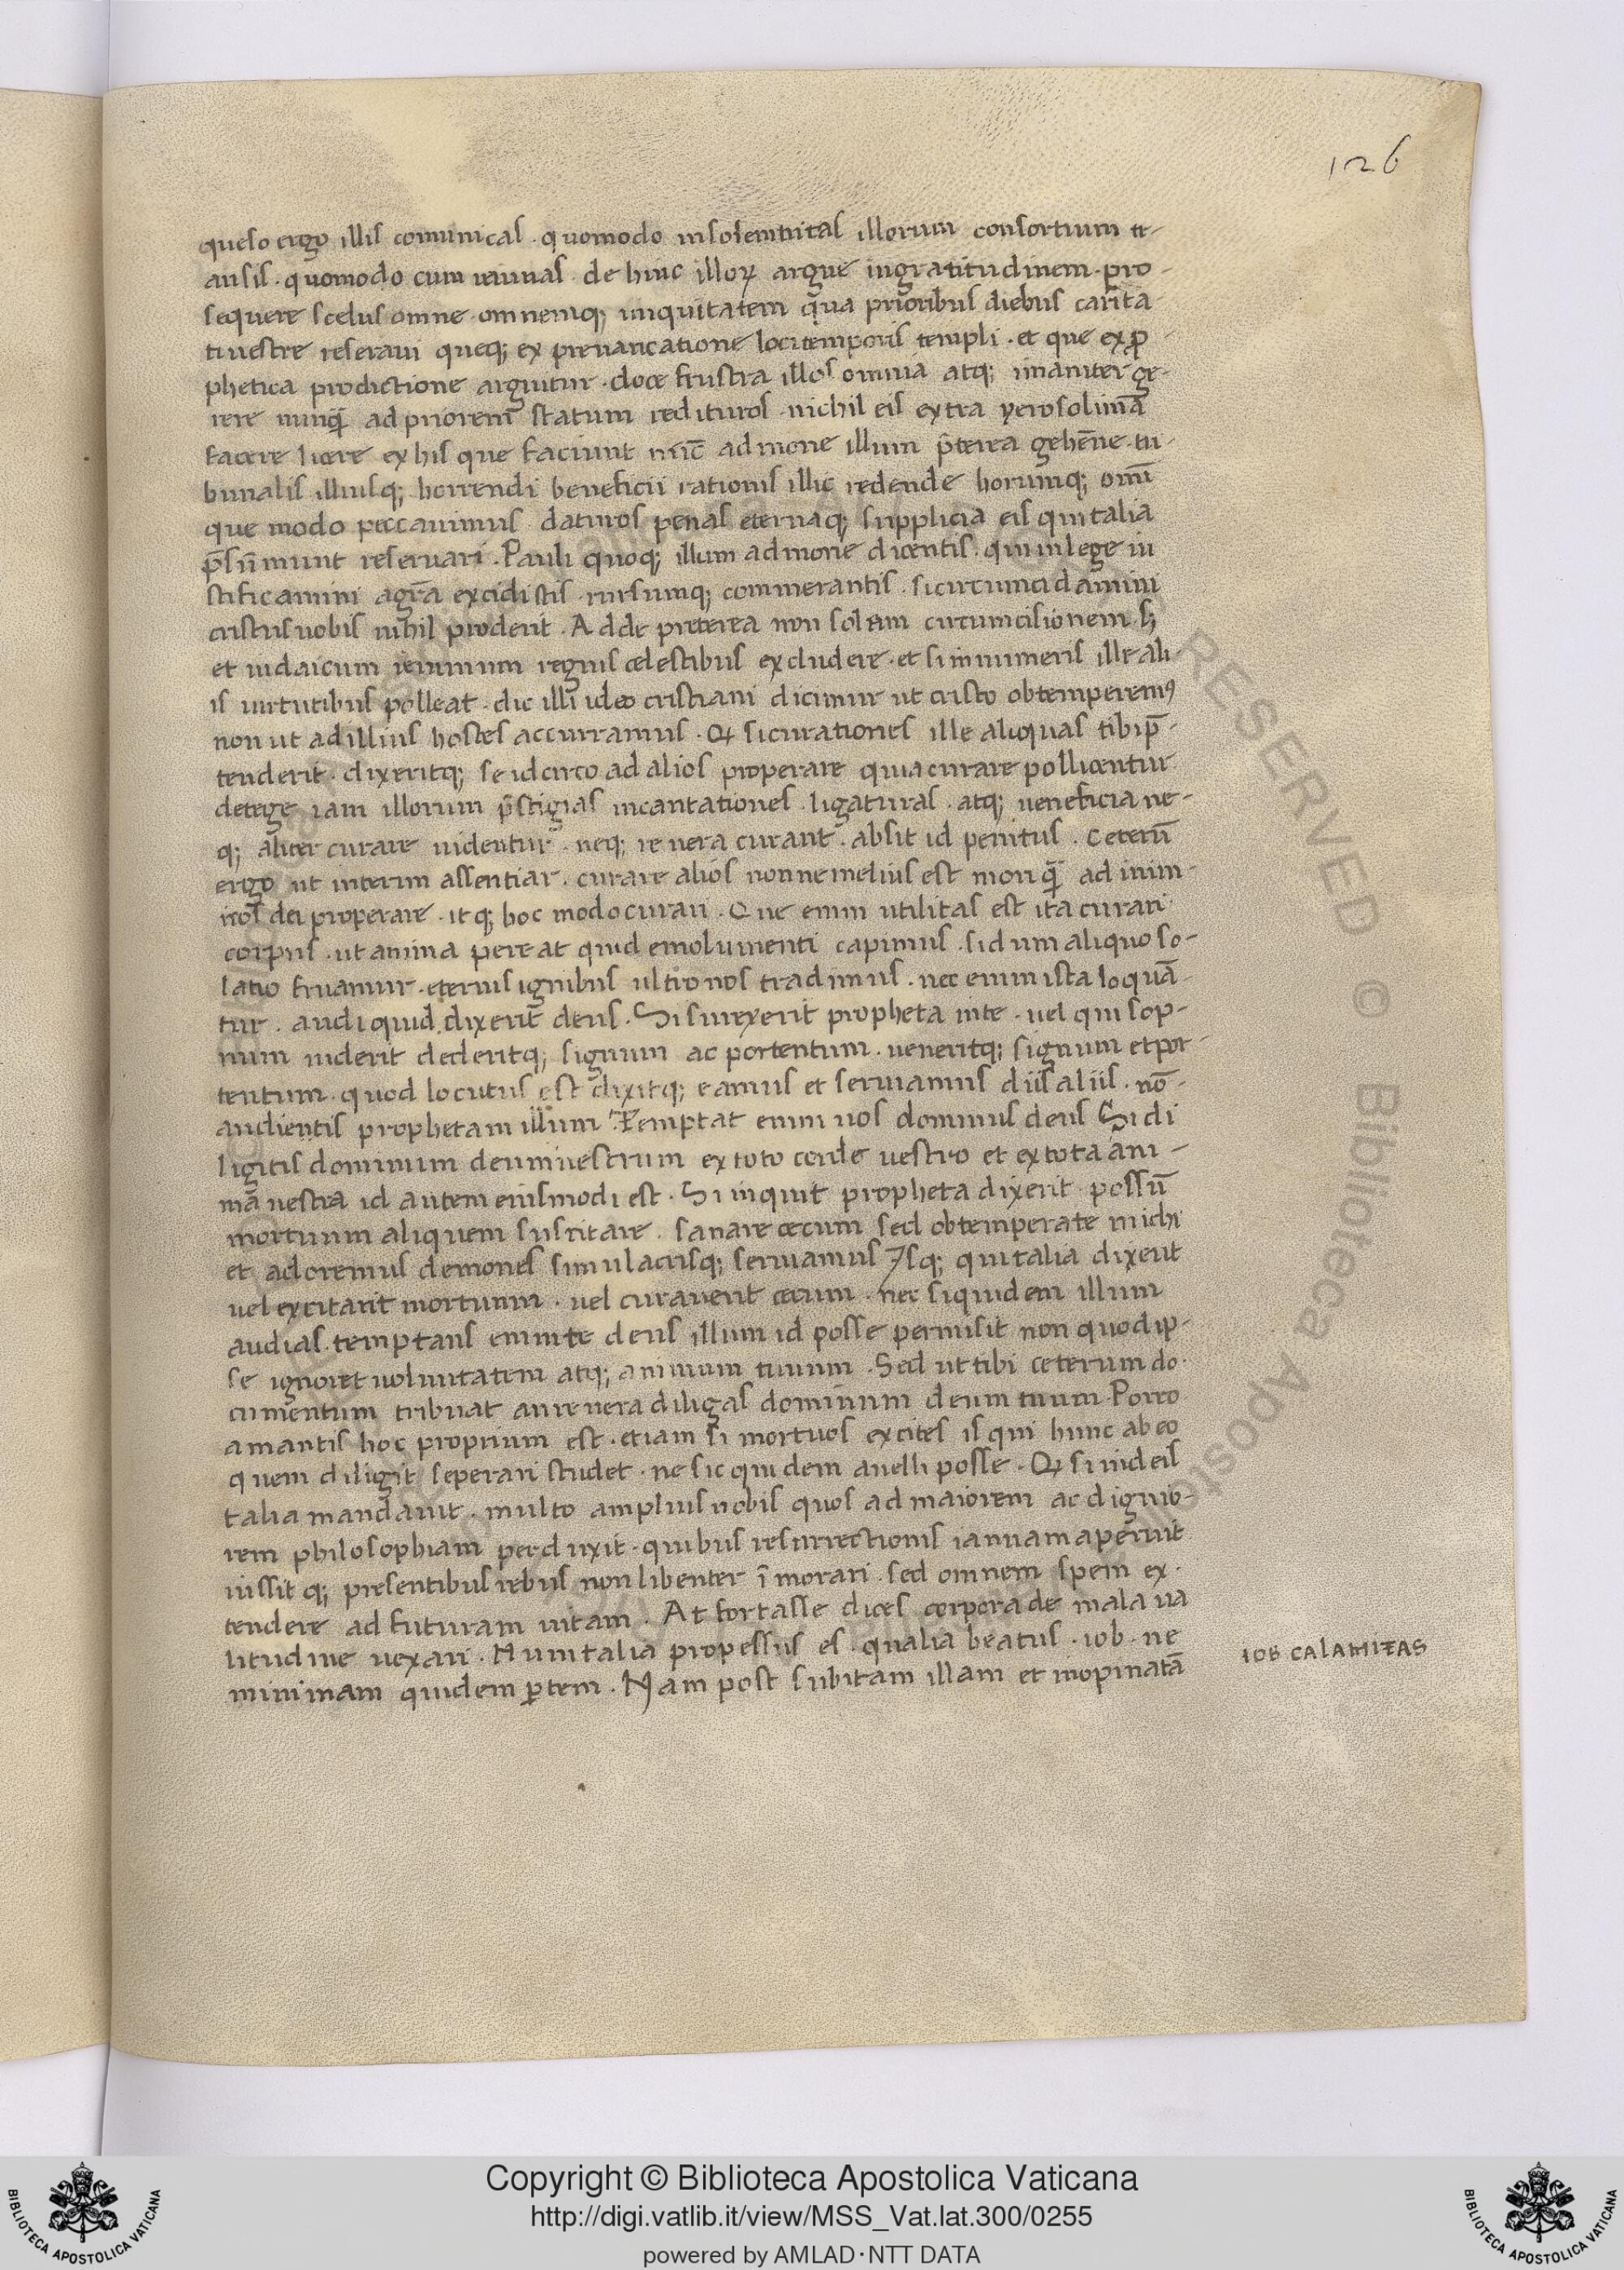 126
queso ergo illis comunicas . quomodo insolemnitas illorum consortium tr-
ansis . quomodo cum ieiunas . de hinc illoꝝ argue ingratitudinem . pro-
sequere scelus omne . omnemq; iniquitatem qua prioribus diebus carita-
ti uestre reseraui queq; ex preuaricatione loci temporis templi . et que ex ꝓ-
phetica prodictione arguitur . doce frustra illos omnia atq; inaniter ge-
rere nunq̄ ad priorem statum redituros . nichil eis extra yerosolimā
facere licere ex his que faciunt nūc admone illum p̄terea gehēne . tri-
bunalis illiusq; horrendi beneficii rationis illic redende horumq; omī
que modo peccauimus daturos penas eternaq; supplicia eis qui talia
p̄sūmunt reseruari . Pauli quoq; illum admone dicentis . qui in lege iu
stificamini a grā excidistis . rursumq; commerantis . si circumcidamini
cristus uobis nihil proderit . Adde preterea non solam circumcisionem . s;
et iudaicum ieiunium regnis celestibus excludere . et si innumeris ille ali
is uirtutibus polleat . dic illi ideo cristiani dicimur ut cristo obtemperemꝰ
non ut ad illius hostes accurramus . Qđ si curationes ille aliquas tibi p̄-
tenderit . dixeritq; se idcirco ad alios properare quia curare pollicentur
detege iam illorum p̄stigias incantationes . ligaturas . atq; ueneficia ne-
q; aliter curare uidentur . neq; re uera curant . absit id penitus . Ceterū
ergo ut interim assentiar . curare alios nonne melius est mori q̄ ad inim-
icos dei properare . itq; hoc modo curari . Que enim utilitas est ita curari
corpus . ut anima pereat quid emolumenti capimus . si dum aliquo so-
latio fruamur . eternis ignibus ultro nos tradimus . nec enim ista loquā-
tur . audi quid dixerit deus . Si surexerit propheta in te . uel qui sop-
num uiderit dederitq; signum ac portentum . ueneritq; signum et por-
tentum . quod locutus est dixitq; eamus et seruiamus diis aliis . nō-
audientis prophetam illum Temptat enim uos dominus deus Si di
ligitis dominum deum uestrum ex toto corde uestro et ex tota ani-
mā uestra id autem eiusmodi est . Si inquit propheta dixerit possū
mortuum aliquem suscitare . sanare cecum sed obtemperate michi
et adoremus demones simulacrisq; seruiamus ⁊sq; qui talia dixerit
uel excitarit mortuum . uel curauerit cecum . nec si quidem illum
audias . temptans enim te deus illum id posse permisit non quod ip-
se ignoret uoluntatem atq; animum tuum . Sed ut tibi ceterum do-
cumentum tribuat an re uera diligas dominum deum tuum . Porro
amantis hoc proprium est . etiam si mortuos excites is qui hunc ab eo
quem diligit seperari studet . ne sic quidem auelli posse . Qđ si iudeis
talia mandauit . multo amplius nobis quos ad maiorem ac dignio-
rem philosophiam perduxit . quibus resurrectionis ianuam aperuit
iussitq; presentibus rebus non libenter īmorari . sed omnem spem ex-
tendere ad futuram uitam . At fortasse dices corpora de mala ua
litudine uexari . Num talia propessus es . qualia beatus . iob . ne
minimam quidem ꝑtem . Nam post subitam illam et inopinatā
IOB CALAMITAS
RESERVED © Biblioteca Apostolica
Copyright © Biblioteca Apostolica Vaticana
http://digi.vatlib.it/view/MSS_Vat.lat.300/0255
powered by AMLAD·NTT DATA
BIBLIOTECA APOSTOLICA VATICANA
BIBLIOTECA APOSTOLICA VATICANA